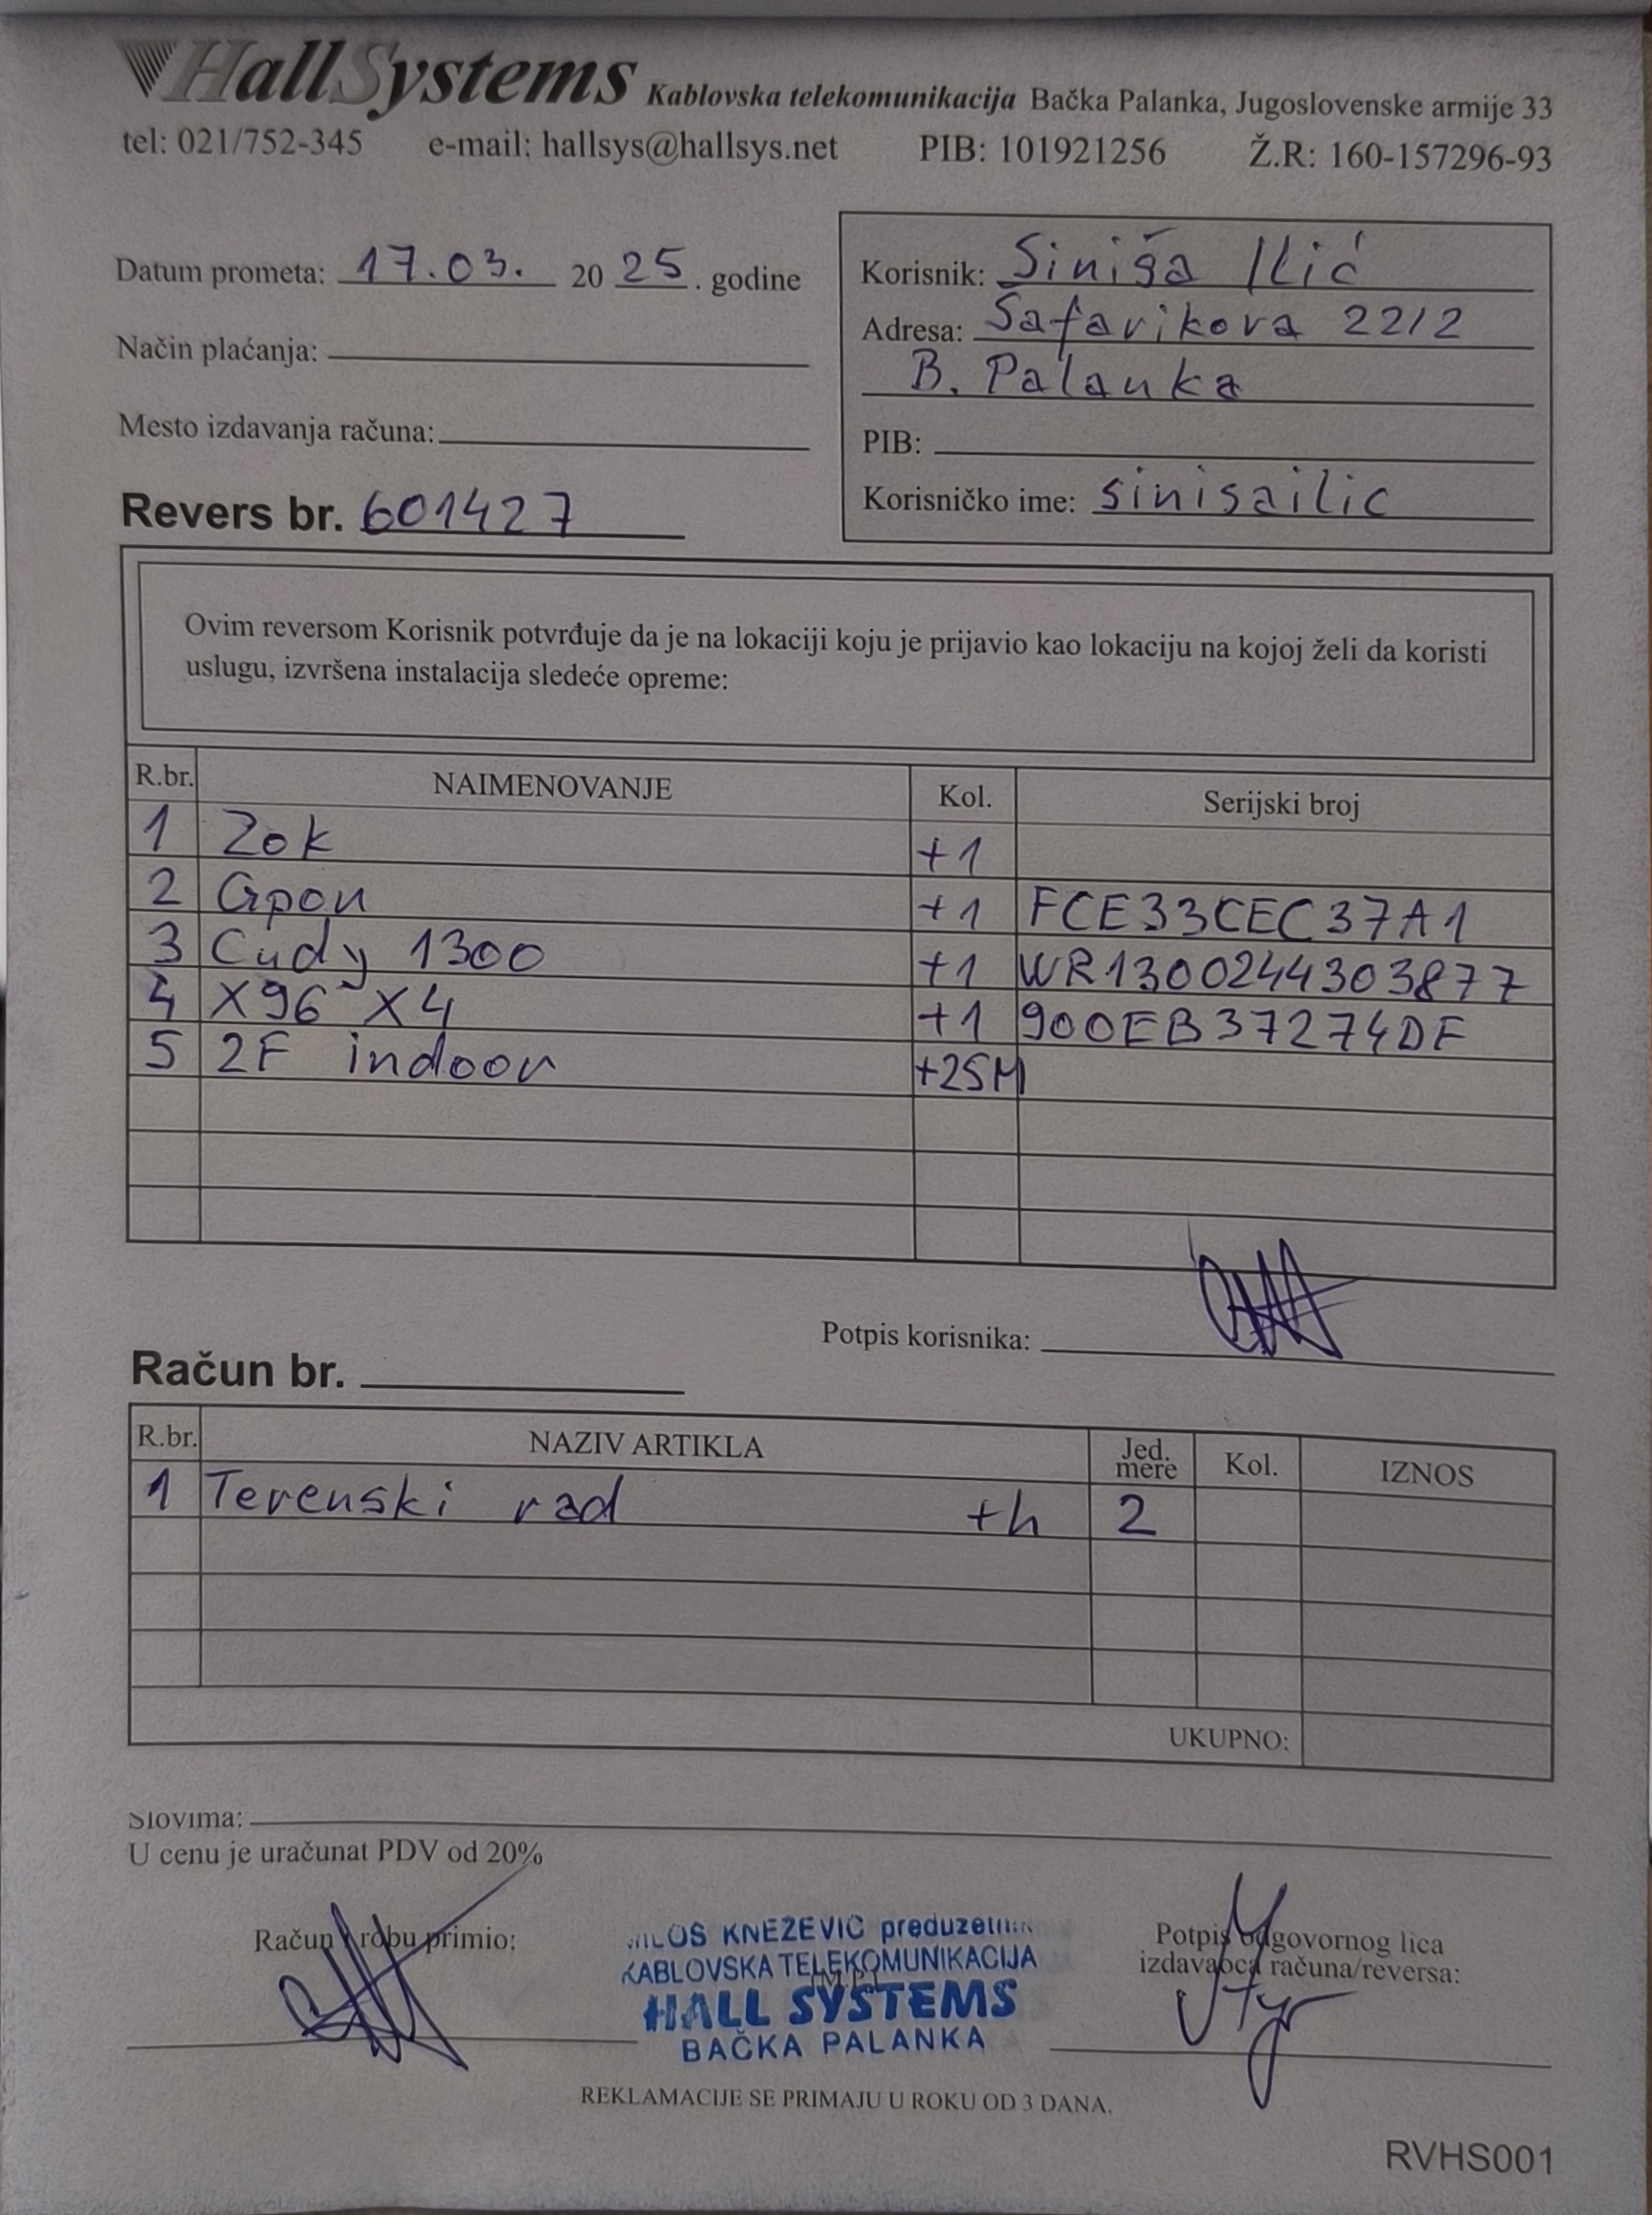 HallSystems Kablovska telekomunikacija Bačka Palanka, Jugoslovenske armije 33
tel: 021/752-345 e-mail: hallsys@hallsys.net PIB: 101921256 Ž.R: 160-157296-93
Datum prometa: 17.03. 2025. godine
Način plaćanja:
Mesto izdavanja računa:
Revers br. 601427
Korisnik: Siniša Ilić
Adresa: Šafarikova 22/2
B. Palanka
PIB:
Korisničko ime: sinisailic
Ovim reversom Korisnik potvrđuje da je na lokaciji koju je prijavio kao lokaciju na kojoj želi da koristi
uslugu, izvršena instalacija sledeće opreme:
R.br. NAIMENOVANJE Kol. Serijski broj
1 Zok +1
2 Gpon +1 FCE33CEC37A1
3 Cudy 1300 +1 WR1300244303877
4 X96 X4 +1 900EB37274DF
5 2F indoor +25M
Potpis korisnika:
Račun br.
R.br. NAZIV ARTIKLA Jed. mere Kol. IZNOS
1 Terenski rad +h 2
UKUPNO:
Slovima:
U cenu je uračunat PDV od 20%
Račun i robu primio:
MILOŠ KNEŽEVIĆ preduzetnik
KABLOVSKA TELEKOMUNIKACIJA
(M.P.)
HALL SYSTEMS
BAČKA PALANKA
Potpis odgovornog lica
izdavaoca računa/reversa:
REKLAMACIJE SE PRIMAJU U ROKU OD 3 DANA.
RVHS001